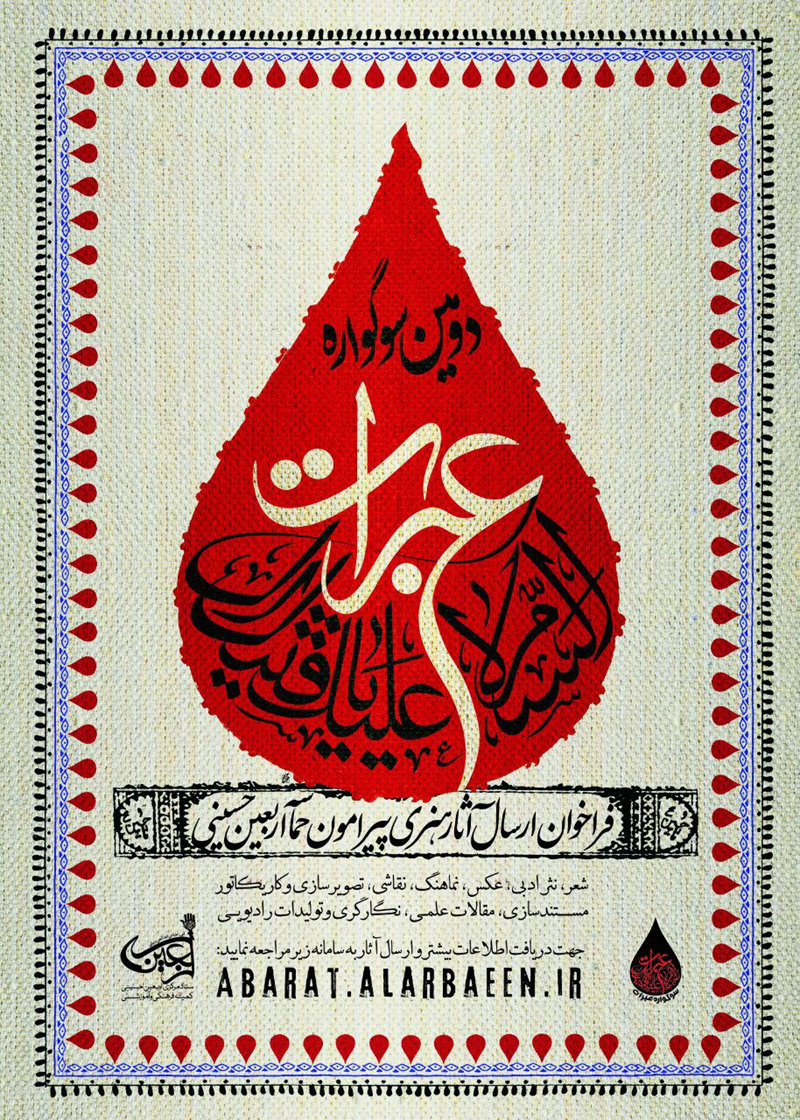 دومین سوگواره
عبرات
السلام علیک یا قتیل
فراخوان ارسال آثار هنری پیرامون حماسه اربعین حسینی
شعر، نثر ادبی، عکس، نماهنگ، نقاشی، تصویرسازی و کاریکاتور
مستندسازی، مقالات علمی، نگارگری و تولیدات رادیویی
جهت دریافت اطلاعات بیشتر و ارسال آثار به سامانه زیر مراجعه نمایید:
ABARAT.ALARBAEEN.IR
اربعین
ستاد مرکزی اربعین حسینی
کمیته فرهنگی و آموزشی
عبرات
سوگواره عبرات